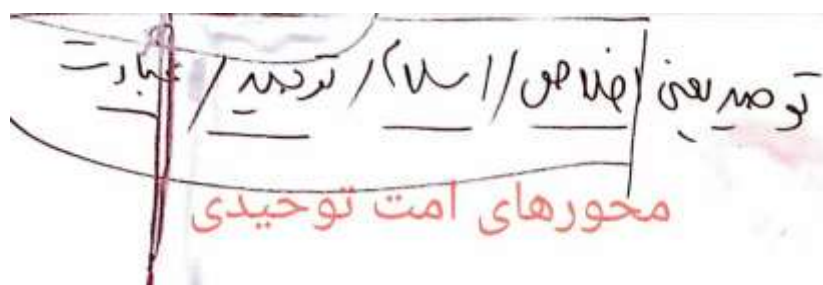 توحید یعنی اخلاص / اسلام / توحید / عبادت
محورهای امت توحیدی